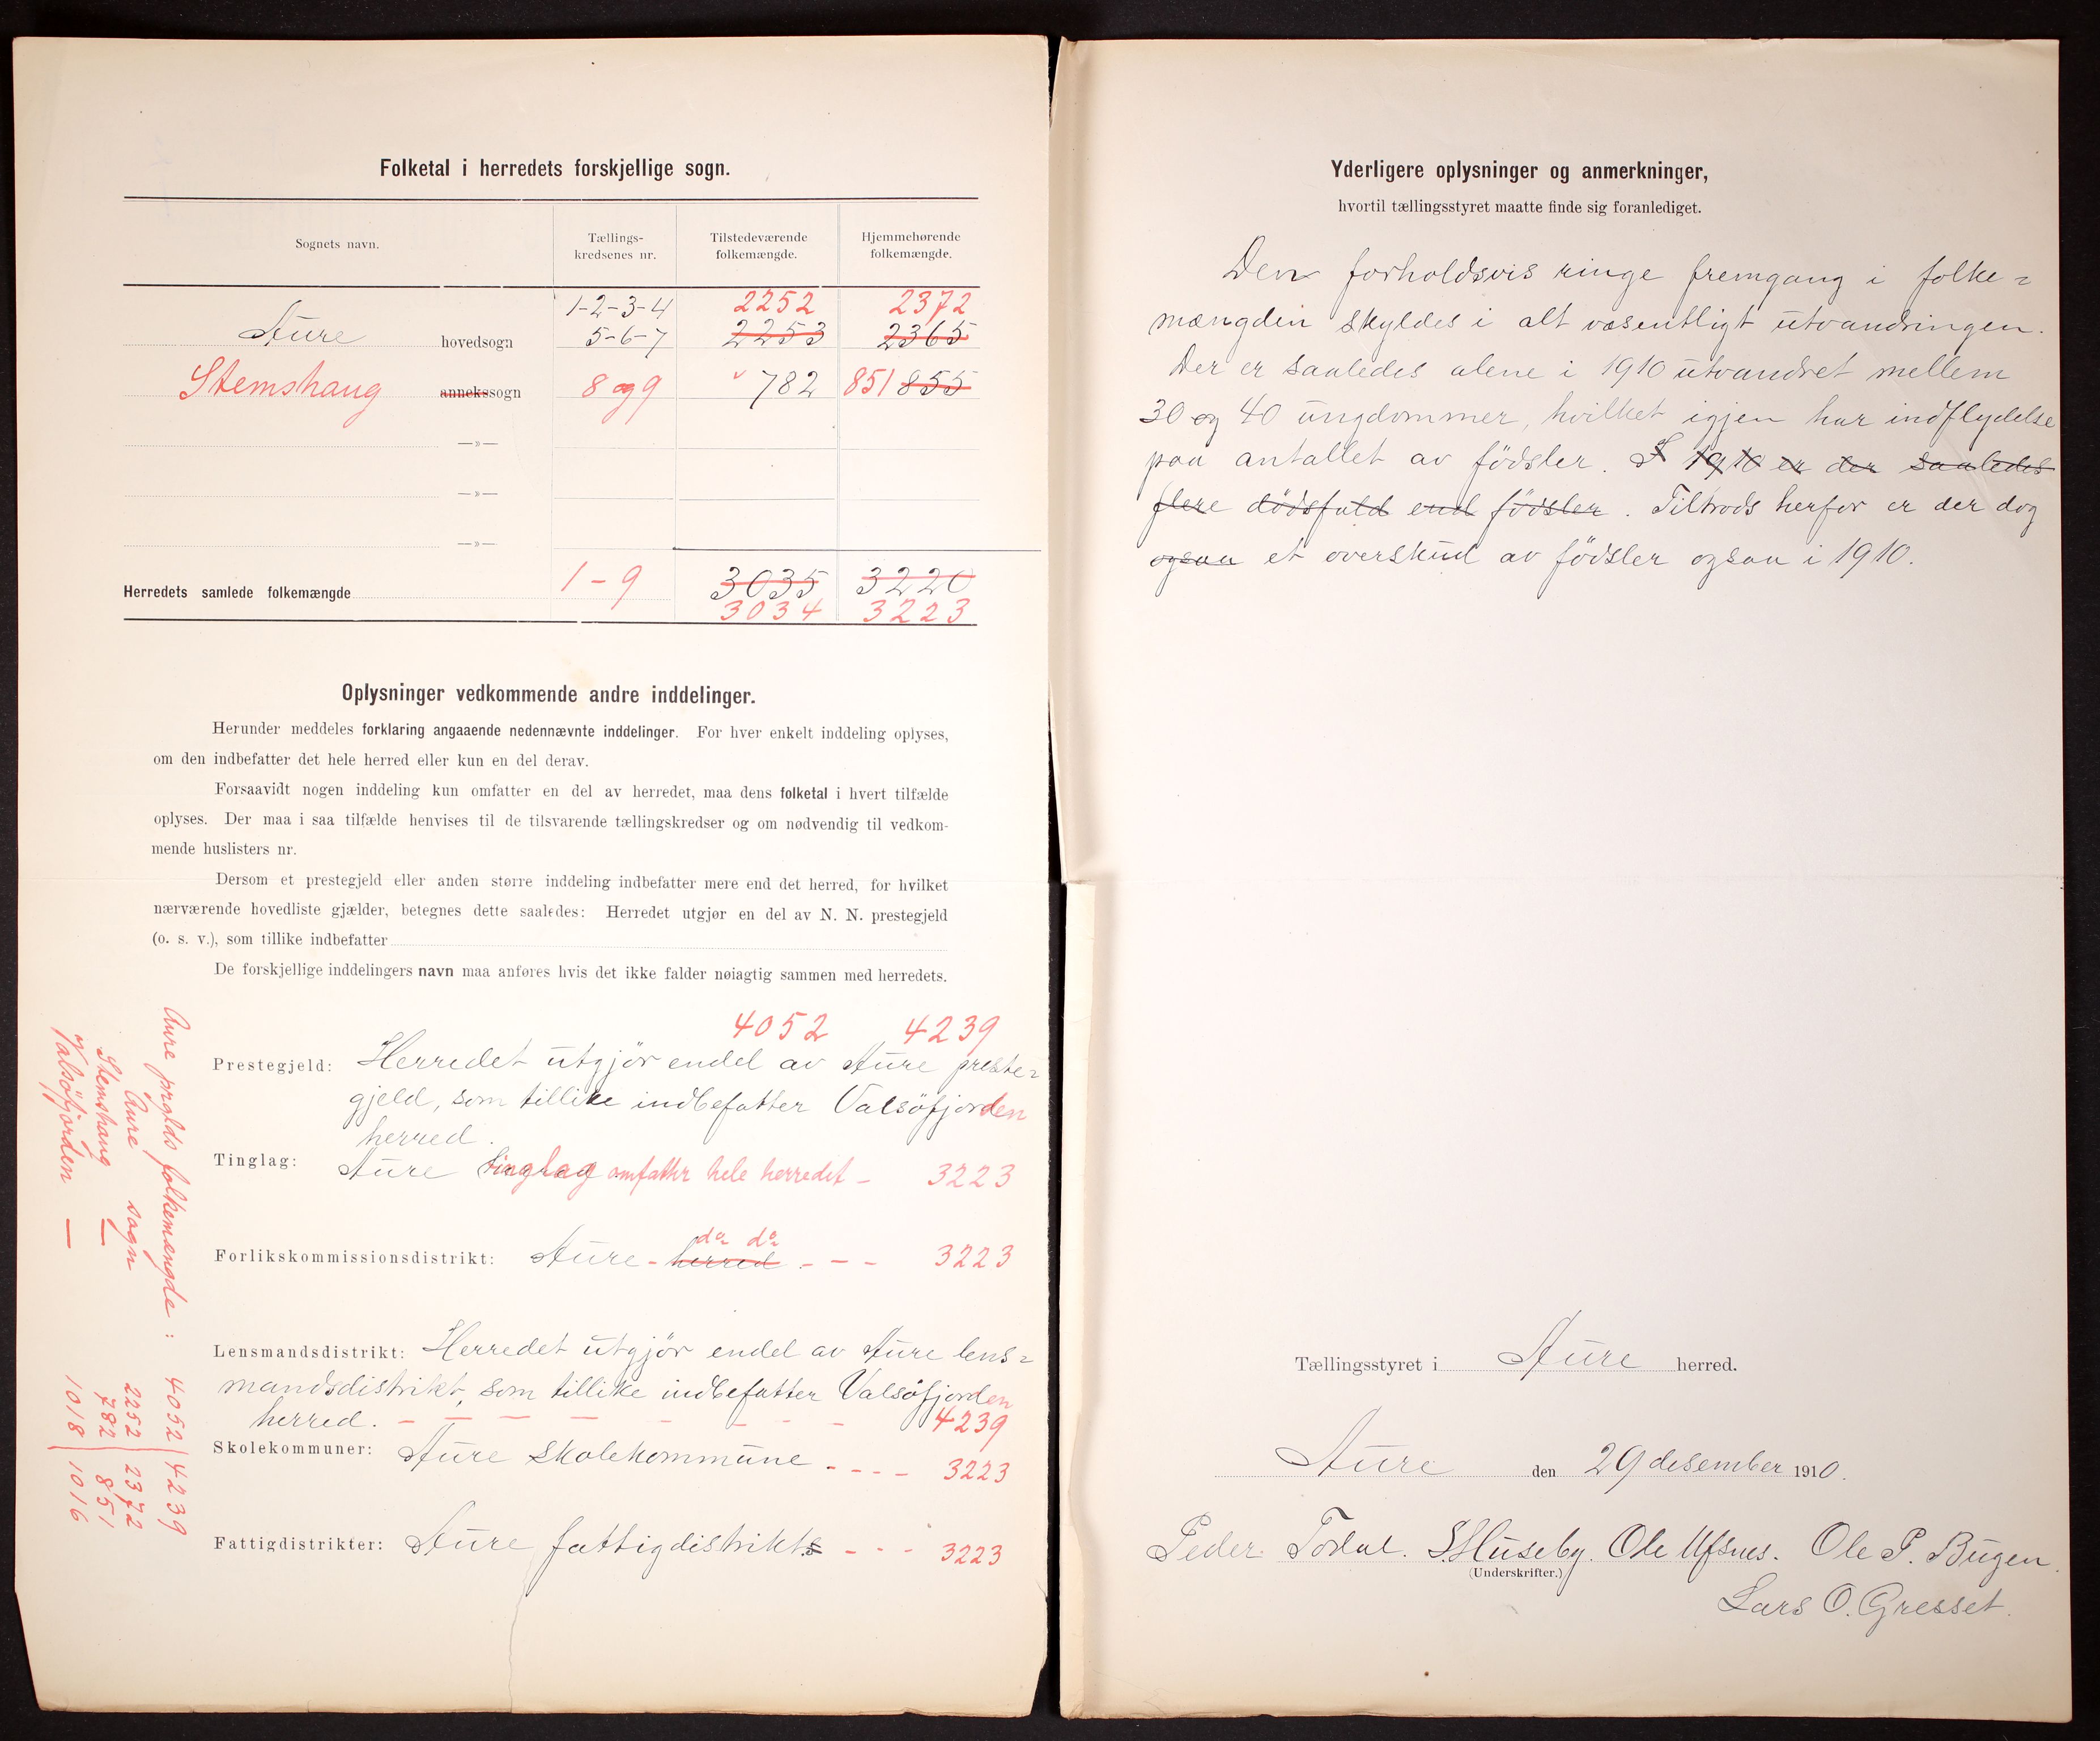 Folketal i herredets forskjellige sogn.
Sognets navn.
Tællings-
kredsenes nr.
Tilstedeværende
folkemængde.
Hjemmehørende
folkemængde.
1-2-3-4 2252 2372
Aure hovedsogn 5-6-7 2253 2365
Stemshaug annekssogn 8 og 9 782 851 855
—»—
—»—
—»—
Herredets samlede folkemængde 1-9 3035 3220
3034 3223
Oplysninger vedkommende andre inddelinger.
Herunder meddeles forklaring angaaende nedennævnte inddelinger. For hver enkelt inddeling oplyses,
om den indbefatter det hele herred eller kun en del derav.
Forsaavidt nogen inddeling kun omfatter en del av herredet, maa dens folketal i hvert tilfælde
oplyses. Der maa i saa tilfælde henvises til de tilsvarende tællingskredser og om nødvendig til vedkom-
mende huslisters nr.
Dersom et prestegjeld eller anden større inddeling indbefatter mere end det herred, for hvilket
nærværende hovedliste gjælder, betegnes dette saaledes: Herredet utgjør en del av N. N. prestegjeld
(o. s. v.), som tillike indbefatter
De forskjellige inddelingers navn maa anføres hvis det ikke falder nøiagtig sammen med herredets.
4052 4239
Prestegjeld: Herredet utgjör endel av Aure preste=
gjeld, som tillike indbefatter Valsöfjorden
herred.
Tinglag: Aure tinglag omfatter hele herredet - 3223
do do
Forlikskommissionsdistrikt: Aure - herred. - - - 3223
Lensmandsdistrikt: Herredet utgjör endel av Aure lens=
mandsdistrikt, som tillike indbefatter Valsöfjorden
herred. - - - - - - - - 4239
Skolekommuner: Aure skolekommune - - - - 3223
Fattigdistrikter: Aure fattigdistrikts - - - 3223
Aure prgjlds folkemængde: 4052 | 4239
Aure sogn 2252 2372
Stemshaug — 782 851
Valsöfjorden — 1018 | 1016
Yderligere oplysninger og anmerkninger,
hvortil tællingsstyret maatte finde sig foranlediget.
Den forholdsvis ringe fremgang i folke=
mængden skyldes i alt væsentligt utvandringen.
Der er saaledes alene i 1910 utvandret mellem
30 og 40 ungdommer, hvilket igjen har indflydelse
paa antallet av födsler. I 1910 er der saaledes
flere dödsfald end födsler. Tiltrods herfor er der dog
ogsaa et overskud av födsler ogsaa i 1910.
Tællingsstyret i Aure herred.
Aure den 29 desember 1910.
Peder Todal. S. Huseby. Ole Ufsnes. Ole P. Bugen.
(Underskrifter.)
Lars O. Gresset.